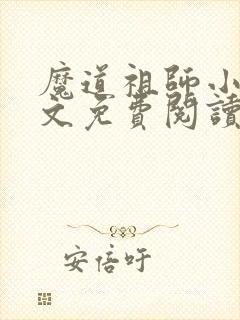 魔道祖師小
文免費閱讀
安倍吁